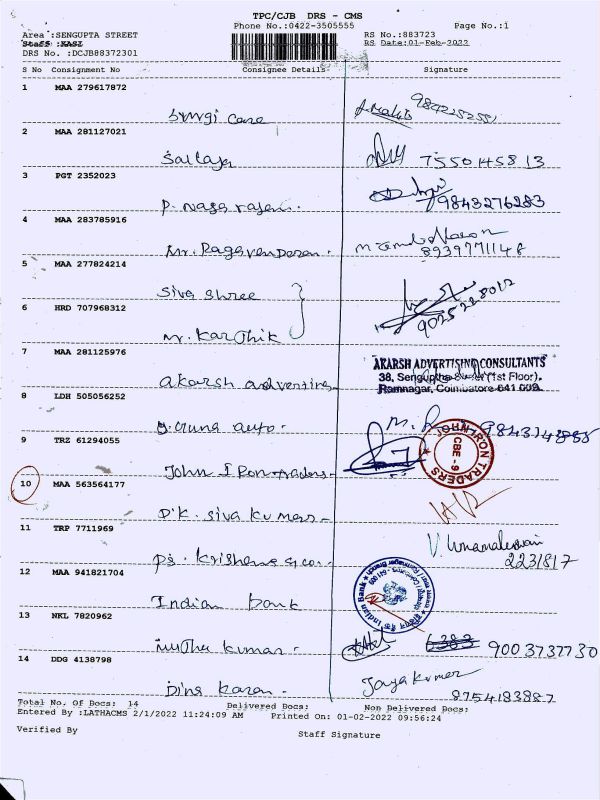 TPC/CJB DRS - CMS
Phone No.:0422-3505555 Page No.:1
Area :SENGUPTA STREET RS No.:883723
Staff :KASI RS Date:01-Feb-2022
DRS No. :DCJB88372301
S No Consignment No Consignee Details Signature
1 MAA 279617872
care 9842252551
2 MAA 281127021
Sailaja 7550145813
3 PGT 2352023
P. Nagarajan. 9843276283
4 MAA 283785916
Mr. Ragavendaran. 8939771148
5 MAA 277824214
Siva Shree
6 HRD 707968312
9025228012
Mr. Karthik
7 MAA 281125976
AKARSH ADVERTISING CONSULTANTS
38, Sengupta Street (1st Floor),
Ramnagar, Coimbatore-641 009.
akarsh advertising
8 LDH 505056252
Aruna auto.
9 TRZ 61294055
JOHN IRON TRADERS
CBE - 9
John Iron traders
10 MAA 563564177
P.K. Siva Kumar
11 TRP 7711969
V. Umamaheswari
2231817
P.S. Krishna & co.
12 MAA 941821704
Indian Bank
Indian bank
13 NKL 7820962
Muthu kumar. 6383 9003737730
14 DDG 4138798
Jayakumar
Dina karan. 9754183887
Total No. Of Docs: 14 Delivered Docs: Non Delivered Docs:
Entered By :LATHACMS 2/1/2022 11:24:09 AM Printed On: 01-02-2022 09:56:24
Verified By Staff Signature